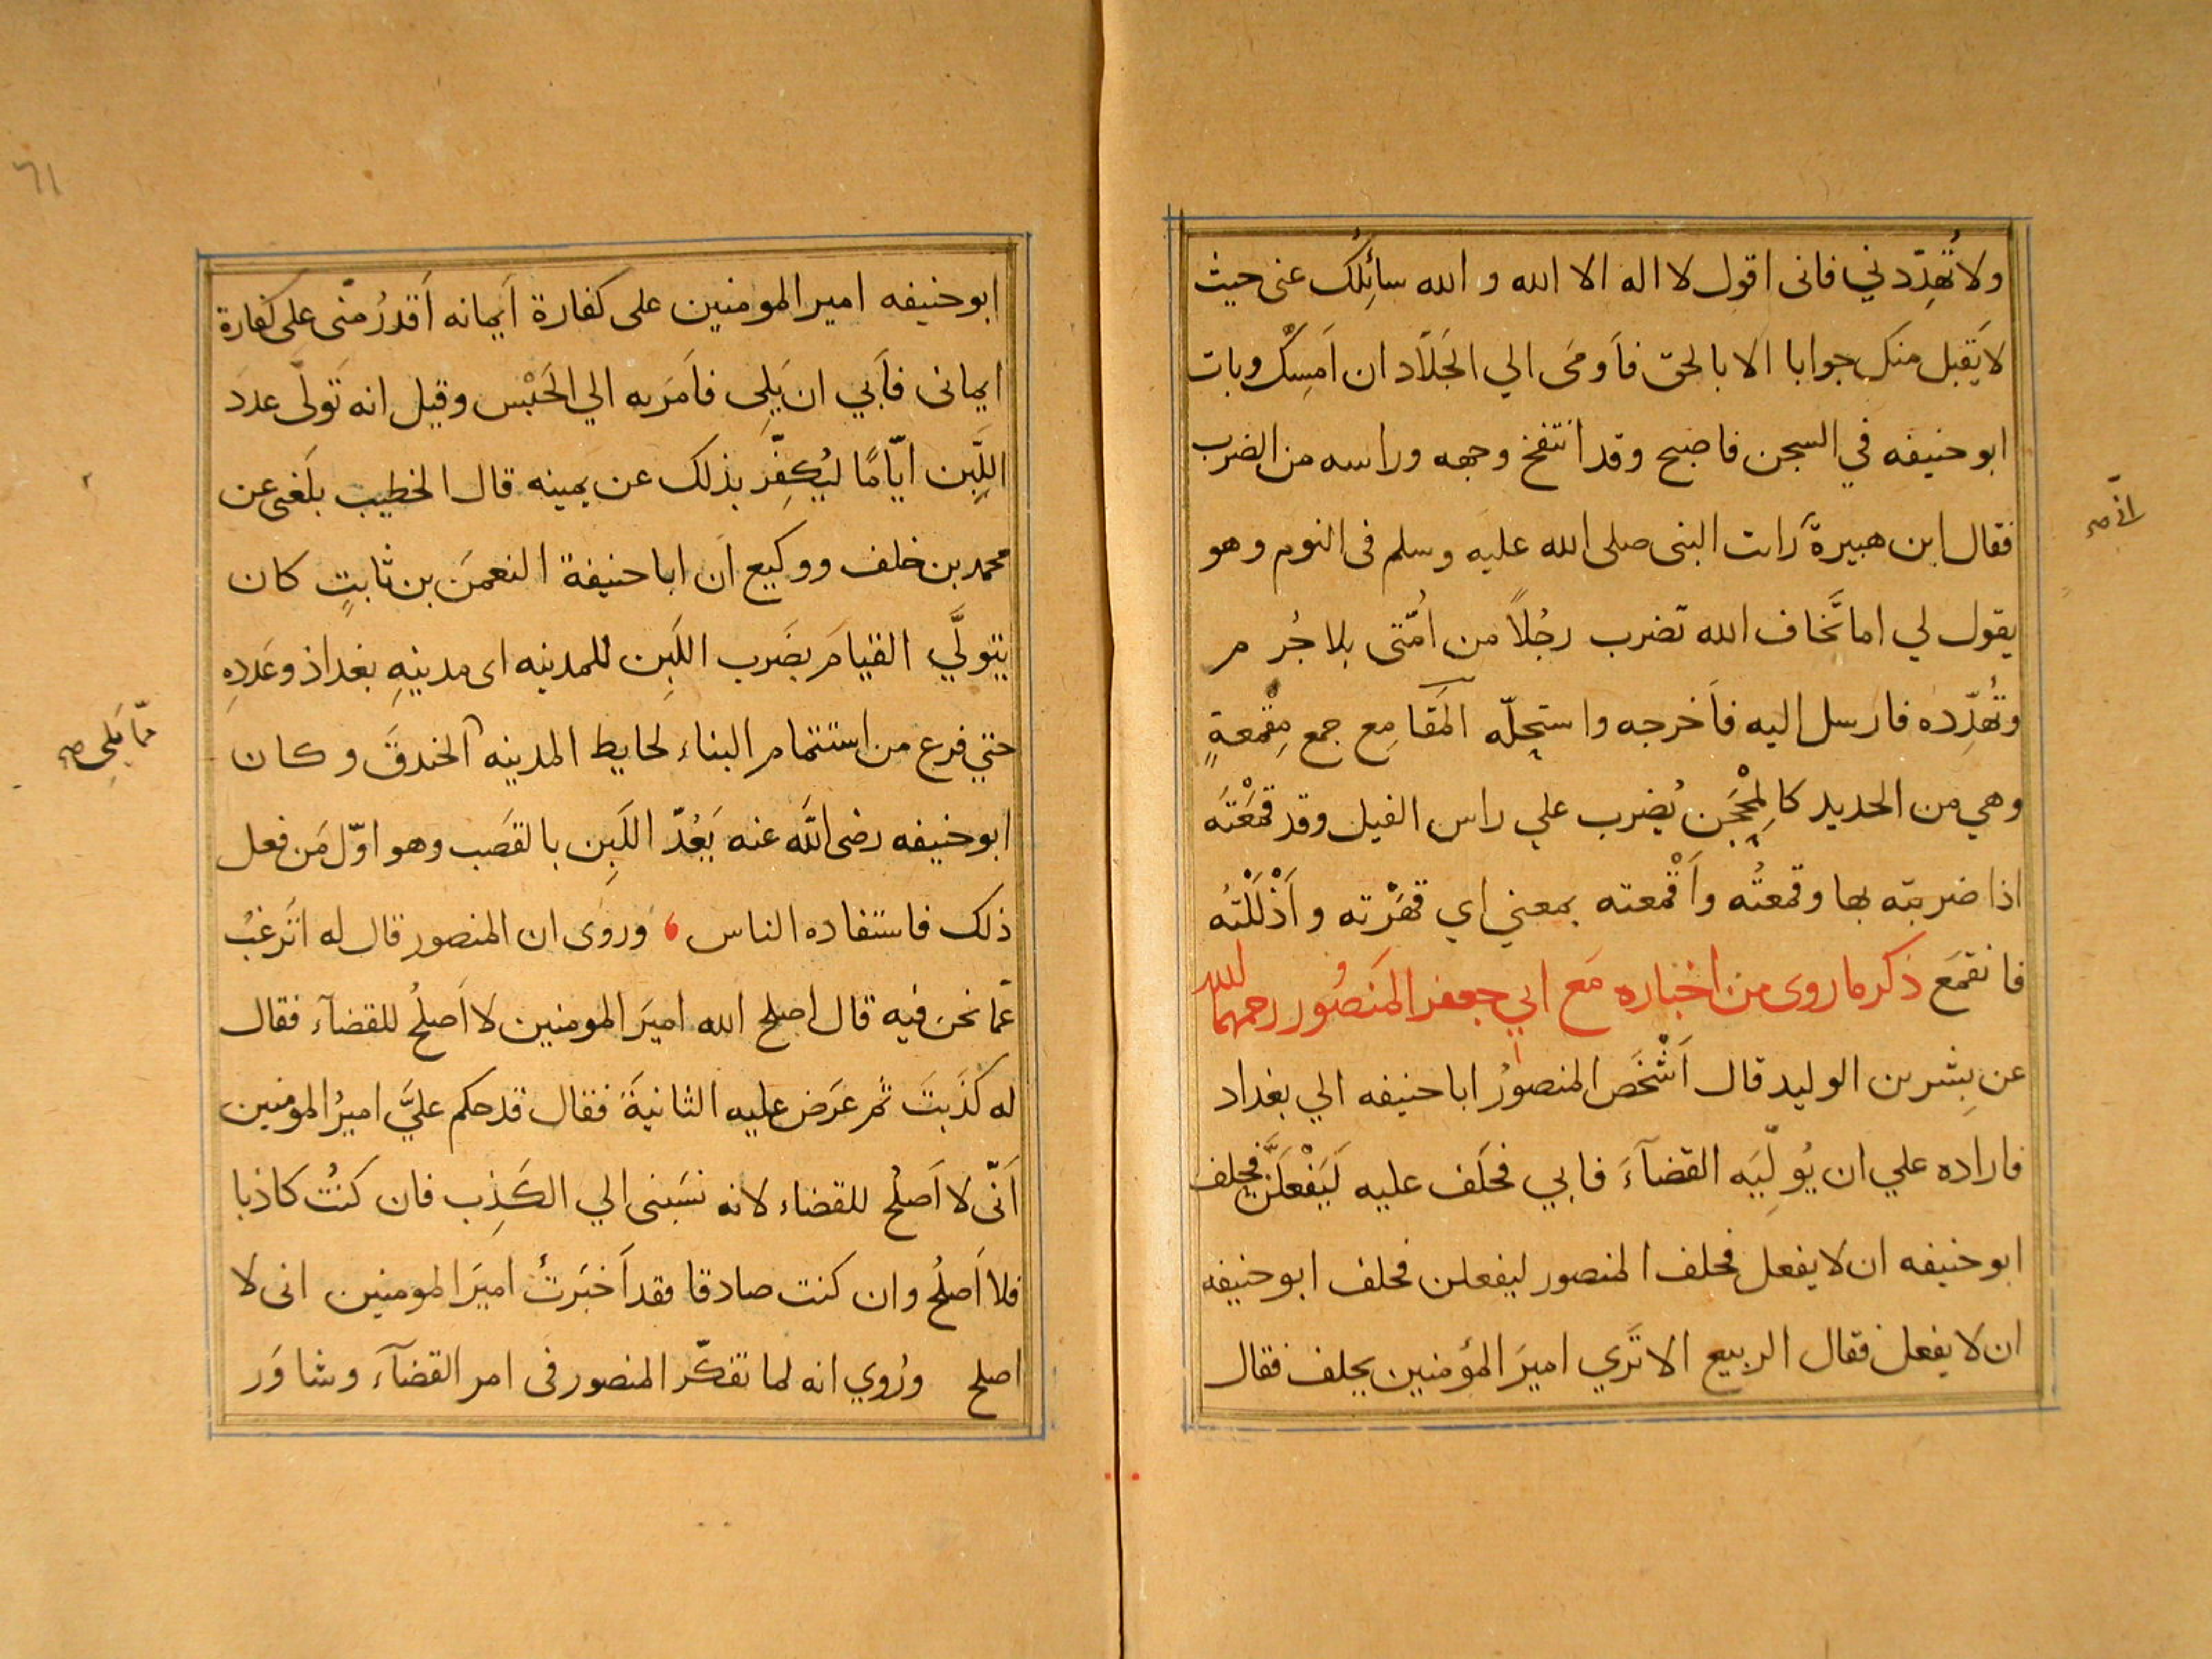 ولا تُهدِّدني فانى اقول لا اله الا الله و الله سائِلُك عنى حيث
لا يَقبل منك جوابا الا بالحق فاَومَى الي الجَلّاد ان اَمسِكْ وبات
ابو حنيفه في السجن فاصبح وقد انتفخ وجهه وراسه من الضرب
فقال ابن هبيرة رات النبى صلى الله عليه وسلم فى النوم وهو
يقول لي اما تَخاف الله تضرب رجُلاً من اُمّتى بلا جُرم
وتُهدِّده فارسل اليه فاَخرجه واستحلّه المَقامِع جمع مِقْمعةٍ
وهي من الحديد كالمِحْجَن يُضرب علي راس الفيل وقد قمَعْتَه
اذا ضربته بها وقمعتُه واَقْمعته بمعني اي قهَرْته واَذْلَلْتُه
فانقمَع ذكر ما روى من اخباره مَع ابي جعفر المَنصُور رحمهما الله
عن بِشر بن الوليد قال اَشْخَص المنصورُ ابا حنيفه الي بغداد
فاراده علي ان يُولّيَه القضآءَ فابي فحَلَف عليه لَيَفْعَلَنَّ فحلف
ابو حنيفه ان لا يفعل فحلف المنصور ليفعلن فحلف ابو حنيفه
ان لا يفعل فقال الربيع الا تَري اميرَ المؤمنين يحلف فقال
ابو حنيفه امير المومنين على كفارة اَيمانه اَقدرُ منّى على كفارة
ايمانى فاَبي ان يَلِى فاَمَر به الي الحَبْس وقيل انه تَولّى عددَ
اللَّبِن ايّامًا ليُكفِّر بذلك عن يمينه قال الخطيب بلَغنى عن
محمد بن خلف ووكيع ان ابا حنيفة النعمن بن ثابتٍ كان
يتولَّي القيامَ بضَرب اللَبِن للمدينه اى مدينهِ بغداذ وعَددِهِ
حتي فرع من استتمام البناء لحايط المدينه الخندقَ وكان
ابو حنيفه رضى الله عنه يَعُدّ اللَبِن بالقصَب وهو اوّل مَن فعل
ذلك فاستفاده الناس ، ورَوى ان المنصور قال له اتَرغبُ
عمّا نحن فيه قال اصلح الله اميرَ المومنين لا اَصلحُ للقضآء فقال
له كذَبتَ ثم عَرَض عليه الثانيةَ فقال قد حكم عليَّ اميرُ المومنين
اَنّى لا اَصلُح للقضاء لانه نسَبنى الي الكَذِب فان كنتُ كاذبا
فلا اَصلُح وان كنت صادقا فقد اَخبَرتُ اميرَ المومنين انى لا
اصلح ورُوي انه لما تفكّر المنصور فى امر القضآءَ وشاوَر
ممّا يَلِى صح
٦١